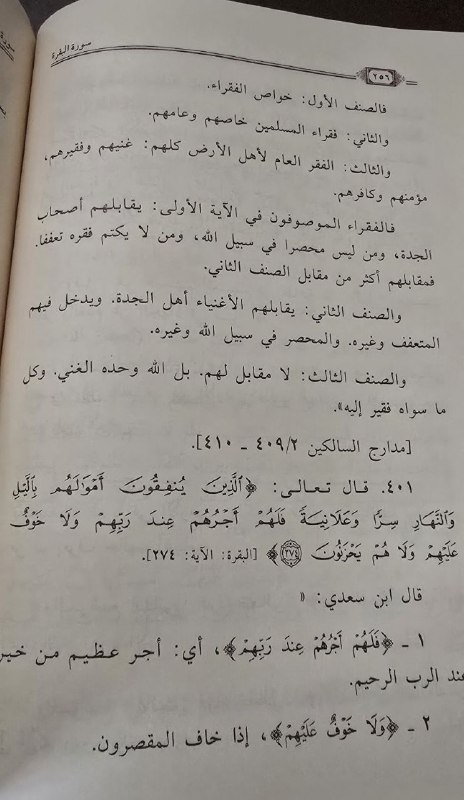 سورة البقرة
٢٥٦
فالصنف الأول: خواص الفقراء.
والثاني: فقراء المسلمين خاصهم وعامهم.
والثالث: الفقر العام لأهل الأرض كلهم: غنيهم وفقيرهم،
مؤمنهم وكافرهم.
فالفقراء الموصوفون في الآية الأولى: يقابلهم أصحاب
الجدة، ومن ليس محصرا في سبيل الله، ومن لا يكتم فقره تعففا.
فمقابلهم أكثر من مقابل الصنف الثاني.
والصنف الثاني: يقابلهم الأغنياء أهل الجدة. ويدخل فيهم
المتعفف وغيره. والمحصر في سبيل الله وغيره.
والصنف الثالث: لا مقابل لهم. بل الله وحده الغني. وكل
ما سواه فقير إليه».
[مدارج السالكين ٤٠٩/٢ ـ ٤١٠].
٤٠١. قال تعالى: ﴿ٱلَّذِينَ يُنفِقُونَ أَمْوَٰلَهُم بِٱلَّيْلِ
وَٱلنَّهَارِ سِرًّا وَعَلَانِيَةً فَلَهُمْ أَجْرُهُمْ عِندَ رَبِّهِمْ وَلَا خَوْفٌ
عَلَيْهِمْ وَلَا هُمْ يَحْزَنُونَ ٢٧٤﴾ [البقرة: الآية: ٢٧٤].
قال ابن سعدي: «
١ ـ ﴿فَلَهُمْ أَجْرُهُمْ عِندَ رَبِّهِمْ﴾، أي: أجر عظيم من خير
عند الرب الرحيم.
٢ ـ ﴿وَلَا خَوْفٌ عَلَيْهِمْ﴾، إذا خاف المقصرون.